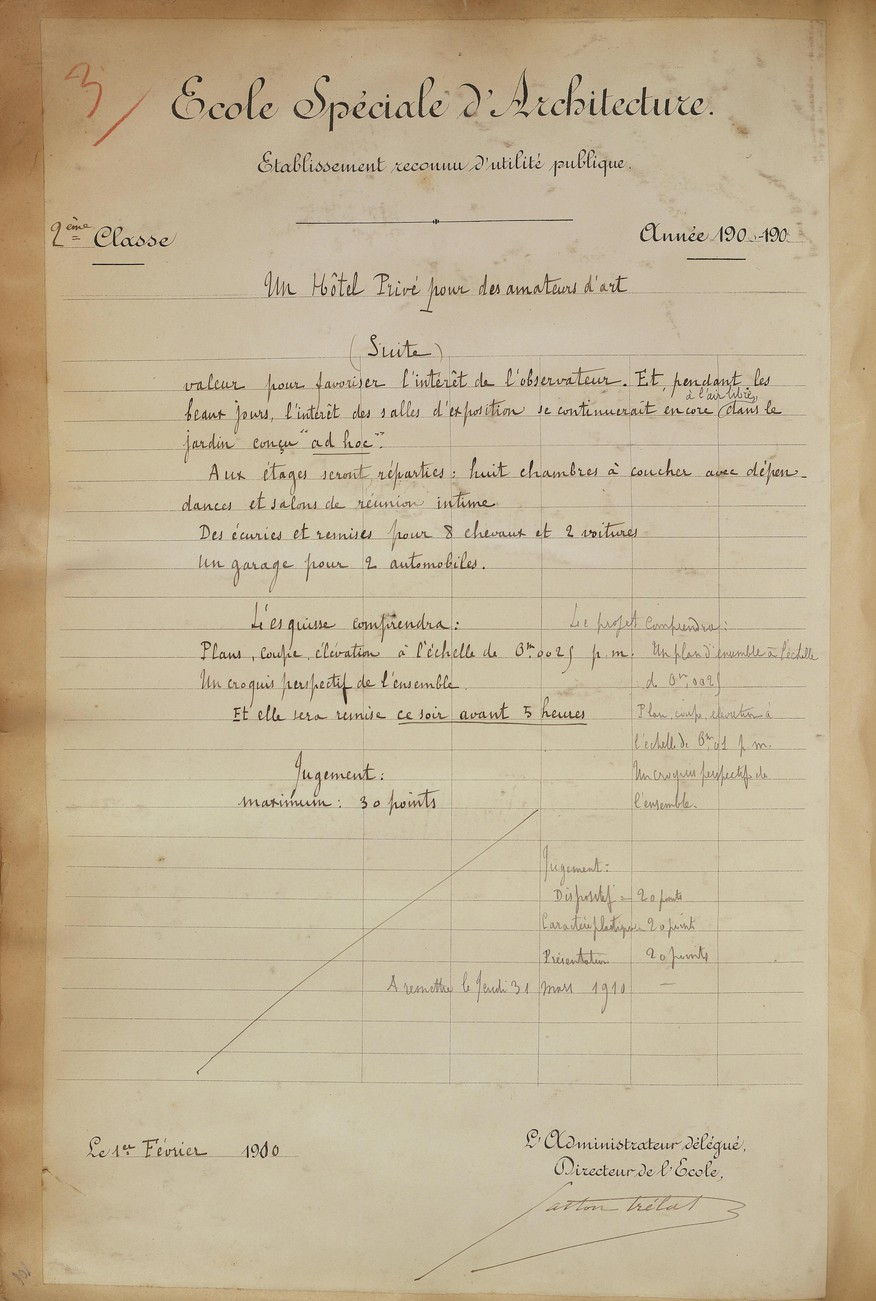 3/
Ecole Spéciale d'Architecture.
Etablissement reconnu d'utilité publique.
2ème Classe
Année 190 -190
Un Hôtel Privé pour des amateurs d'art
(Suite)
valeur pour favoriser l'intérêt de l'observateur. Et, pendant les
à l'air libre,
beaux jours, l'intérêt des salles d'exposition se continuerait encore dans le
jardin conçu "ad hoc".
Aux étages seront réparties : huit chambres à coucher avec dépen-
dances et salons de réunion intime
Des écuries et remises pour 8 chevaux et 2 voitures
Un garage pour 2 automobiles.
L'esquisse comprendra :
Plans, coupe, élévation à l'échelle de 0m.0025 p. m.
Un croquis perspectif de l'ensemble.
Et elle sera remise ce soir avant 5 heures
Jugement :
maximum : 30 points
Le projet comprendra :
Un plan d'ensemble à l'échelle
d 0m,0025
Plan, coupe, élévation à
l'échelle de 0m,01 p m.
Un croquis perspectif de
l'ensemble.
Jugement :
Dispositif = 20 points
Caractère plastique 20 points
Présentation 20 points
A remettre le Jeudi 31 mars 1910 —
Le 1er Février 1910
L'Administrateur délégué,
Directeur de l'Ecole,
Gaston Trélat